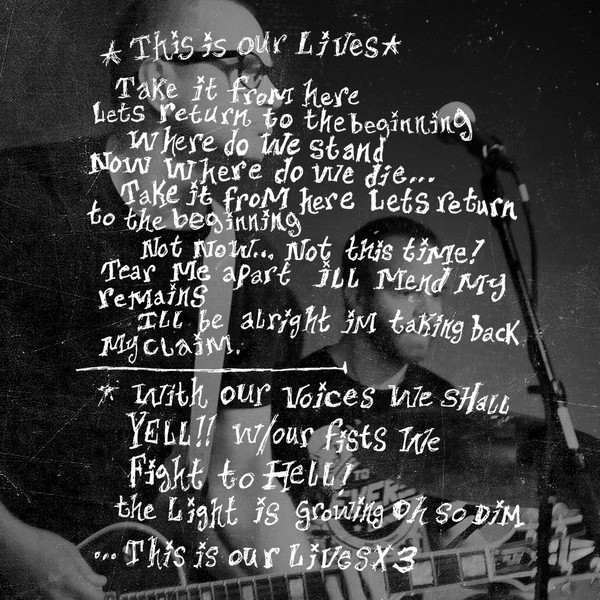 ★ This is our Lives ★
Take it from here
Lets return to the beginning
Where do we stand
Now where do we die...
Take it from here Lets return
to the beginning
Not Now... Not this time!
Tear me apart ill mend my
remains
Ill be alright im taking back
my claim.
★ with our voices we shall
YELL!! w/our fists we
Fight to Hell!
the Light is growing oh so Dim
... This is our Lives x3